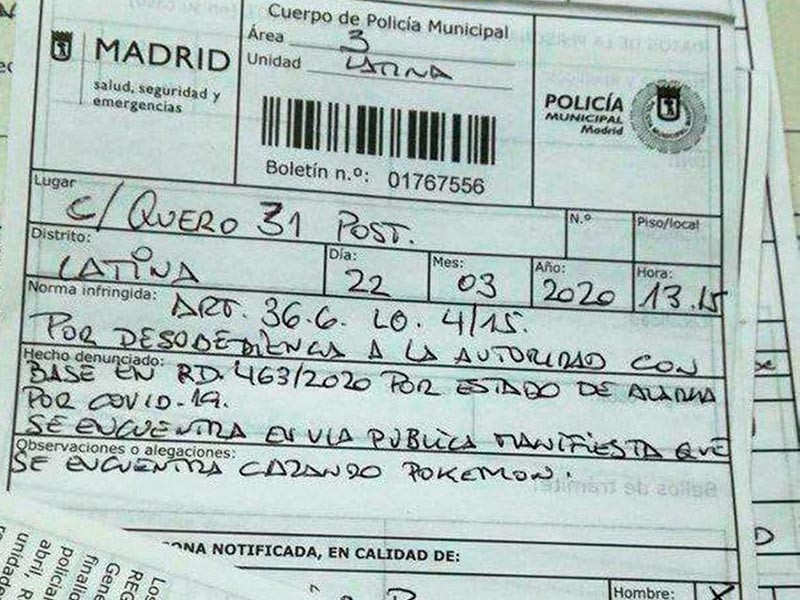 Cuerpo de Policía Municipal
Área 3
Unidad LATINA
MADRID
salud, seguridad y
emergencias
POLICÍA
MUNICIPAL
Madrid
Boletín n.º: 01767556
Lugar
C/ QUERO 31 POST.
N.º
Piso/local
Distrito:
LATINA
Día: 22
Mes: 03
Año: 2020
Hora: 13.15
Norma infringida: ART. 36.6. LO. 4/15.
POR DESOBEDIENCIA A LA AUTORIDAD CON
Hecho denunciado:
BASE EN RD. 463/2020 POR ESTADO DE ALARMA
POR COVID-19.
SE ENCUENTRA EN VIA PUBLICA MANIFIESTA QUE
Observaciones o alegaciones:
SE ENCUENTRA CAZANDO POKEMON.
ONA NOTIFICADA, EN CALIDAD DE:
Hombre: X
Los
REG
Gene
finali
policia
abril, R
unidade